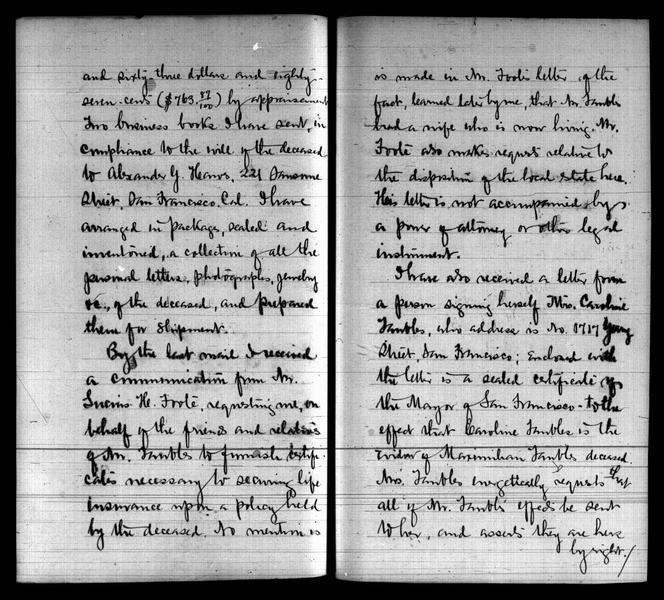 and sixty-three dollars and eighty-
seven-cents ($763.87/100) by appraisement
Two business books I have sent, in
compliance to the will of the deceased
to Alexander G. Hawes, 221 Sansome
Street, San Francisco, Cal. I have
arranged in package, sealed and
inventoried, a collection of all the
personal letters, photographs, jewelry
&c., of the deceased, and prepared
them for shipment.
By the last mail I received
a communication from Mr.
Lucius H. Foote, requesting me, on
behalf of the friends and relatives
of Mr. Taubles to furnish certifi-
cates necessary to securing life
insurance upon a policy held
by the deceased. No mention is
is made in Mr. Foote's letter of the
fact, learned later by me, that Mr. Taubles
had a wife who is now living. Mr.
Foote also makes requests relative to
the disposition of the local estate here.
His letter is not accompanied by
a power of attorney or other legal
instrument.
I have also received a letter from
a person signing herself Mrs. Caroline
Taubles, who address is No. 1717 Geary
Street, San Francisco; Enclosed with
the letter is a sealed certificate of
the Mayor of San Francisco to the
effect that Caroline Taubles is the
widow of Maximilian Taubles deceased.
Mrs. Taubles energetically requests that
all of Mr. Taubles effects be sent
to her, and asserts they are hers
by right./